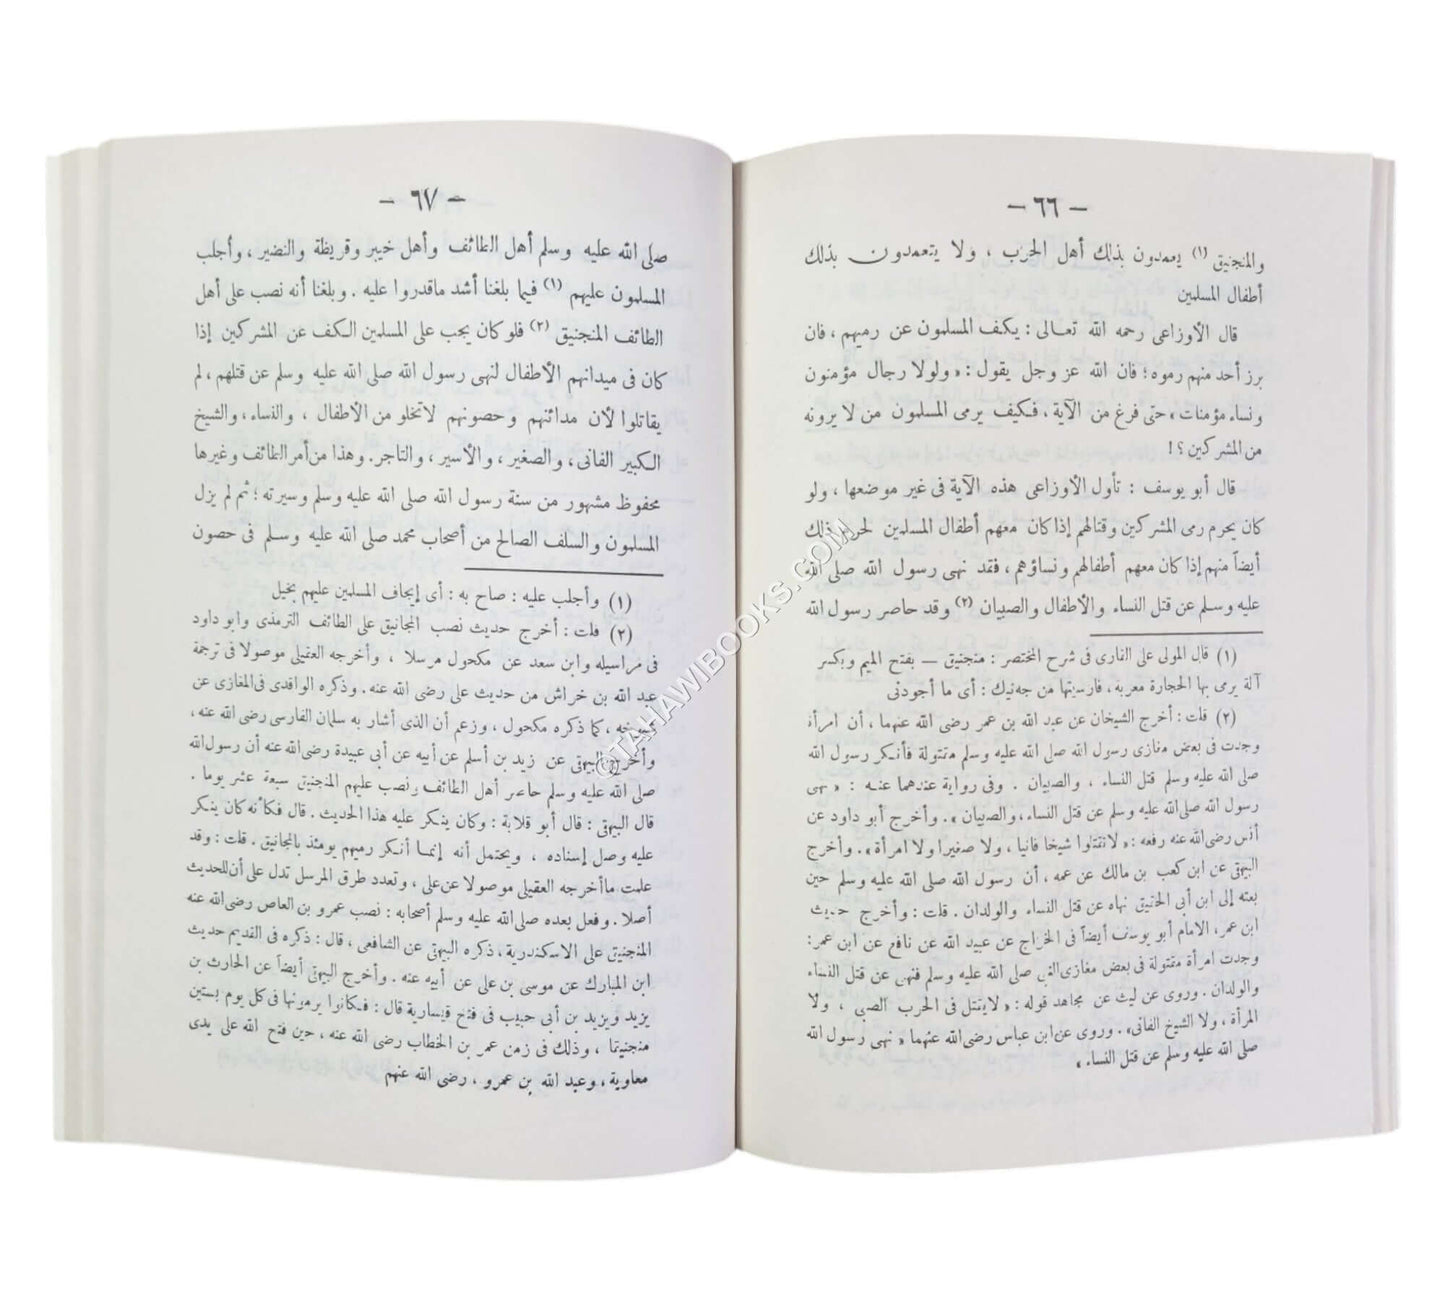 — ٦٦ —
والمنجنيق (١) يعمدون بذلك أهل الحرب ، ولا يتعمدون بذلك
أطفال المسلمين
قال الأوزاعى رحمه الله تعالى : يكف المسلمون عن رميهم ، فان
برز أحد منهم رموه ؛ فان الله عز وجل يقول : « ولولا رجال مؤمنون
ونساء مؤمنات » حتى فرغ من الآية ، فكيف يرمى المسلمون من لا يرونه
من المشركين ؟ !
قال أبو يوسف : تأول الأوزاعى هذه الآية فى غير موضعها ، ولو
كان يحرم رمى المشركين وقتالهم إذا كان معهم أطفال المسلمين لحرم ذلك
أيضاً منهم إذا كان معهم أطفالهم ونساؤهم ، فقد نهى رسول الله صلى الله
عليه وسلم عن قتل النساء والأطفال والصبيان (٢) وقد حاصر رسول الله
(١) قال المولى على القارى فى شرح المختصر : منجنيق — بفتح الميم وبكسر
آلة يرمى بها الحجارة معربة ، فارسيتها من جه نيك : أى ما أجودنى
(٢) قلت : أخرج الشيخان عن عبد الله بن عمر رضى الله عنهما ، أن امرأة
وجدت فى بعض مغازى رسول الله صلى الله عليه وسلم مقتولة فأنكر رسول الله
صلى الله عليه وسلم قتل النساء ، والصبيان . وفى رواية عندهما عنه : « نهى
رسول الله صلى الله عليه وسلم عن قتل النساء ، والصبيان » . وأخرج أبو داود عن
أنس رضى الله عنه رفعه : « لا تقتلوا شيخا فانيا ، ولا صغيرا ولا امرأة » . وأخرج
البيهقى عن ابن كعب بن مالك عن عمه ، أن رسول الله صلى الله عليه وسلم حين
بعثه إلى ابن أبى الحقيق نهاه عن قتل النساء والولدان . قلت : وأخرج حديث
ابن عمر ، الامام أبو يوسف أيضاً فى الخراج عن عبيد الله عن نافع عن ابن عمر :
وجدت امرأة مقتولة فى بعض مغازى النبى صلى الله عليه وسلم فنهى عن قتل النساء
والولدان . وروى عن ليث عن مجاهد قوله : « لا يقتل فى الحرب الصبى ، ولا
المرأة ، ولا الشيخ الفانى » . وروى عن ابن عباس رضى الله عنهما « نهى رسول الله
صلى الله عليه وسلم عن قتل النساء »
— ٦٧ —
صلى الله عليه وسلم أهل الطائف وأهل خيبر وقريظة والنضير ، وأجلب
المسلمون عليهم (١) فيما بلغنا أشد ماقدروا عليه . وبلغنا أنه نصب على أهل
الطائف المنجنيق (٢) فلو كان يجب على المسلمين الكف عن المشركين إذا
كان فى ميدانهم الأطفال لنهى رسول الله صلى الله عليه وسلم عن قتلهم ، لم
يقاتلوا لأن مدائنهم وحصونهم لاتخلو من الأطفال ، والنساء ، والشيخ
الكبير الفانى ، والصغير ، والأسير ، والتاجر . وهذا من أمر الطائف وغيرها
محفوظ مشهور من سنة رسول الله صلى الله عليه وسلم وسيرته ؛ ثم لم يزل
المسلمون والسلف الصالح من أصحاب محمد صلى الله عليه وسلم فى حصون
(١) وأجلب عليه : صاح به : أى إيجاف المسلمين عليهم بخيل
(٢) قلت : أخرج حديث نصب المجانيق على الطائف الترمذى وابو داود
فى مراسيله وابن سعد عن مكحول مرسلا ، وأخرجه العقيلى موصولا فى ترجمة
عبد الله بن خراش من حديث على رضى الله عنه . وذكره الواقدى فى المغازى عن
شيوخه ، كما ذكره مكحول ، وزعم أن الذى أشار به سلمان الفارسى رضى الله عنه ،
وأخرج البيهقى عن زيد بن أسلم عن أبيه عن أبى عبيدة رضى الله عنه أن رسول الله
صلى الله عليه وسلم حاصر أهل الطائف ونصب عليهم المنجنيق سبعة عشر يوما .
قال البيهقى : قال أبو قلابة : وكان ينكر عليه هذا الحديث . قال فكأنه كان ينكر
عليه وصل إسناده ، ويحتمل أنه إنما أنكر رميهم يومئذ بالمجانيق . قلت : وقد
علمت ما أخرجه العقيلى موصولا عن على ، وتعدد طرق المرسل تدل على أن للحديث
أصلا . وفعل بعده صلى الله عليه وسلم أصحابه : نصب عمرو بن العاص رضى الله عنه
المنجنيق على الاسكندرية ، ذكره البيهقى عن الشافعى ، قال : ذكره فى القديم حديث
ابن المبارك عن موسى بن على عن أبيه عنه . وأخرج البيهقى أيضاً عن الحارث بن
يزيد ويزيد بن أبى حبيب فى فتح قيسارية قال : فكانوا يرمونها فى كل يوم بستين
منجنيقا ، وذلك فى زمن عمر بن الخطاب رضى الله عنه ، حين فتح الله على يدى
معاوية ، وعبد الله بن عمرو ، رضى الله عنهم
©TAHAWIBOOKS.COM